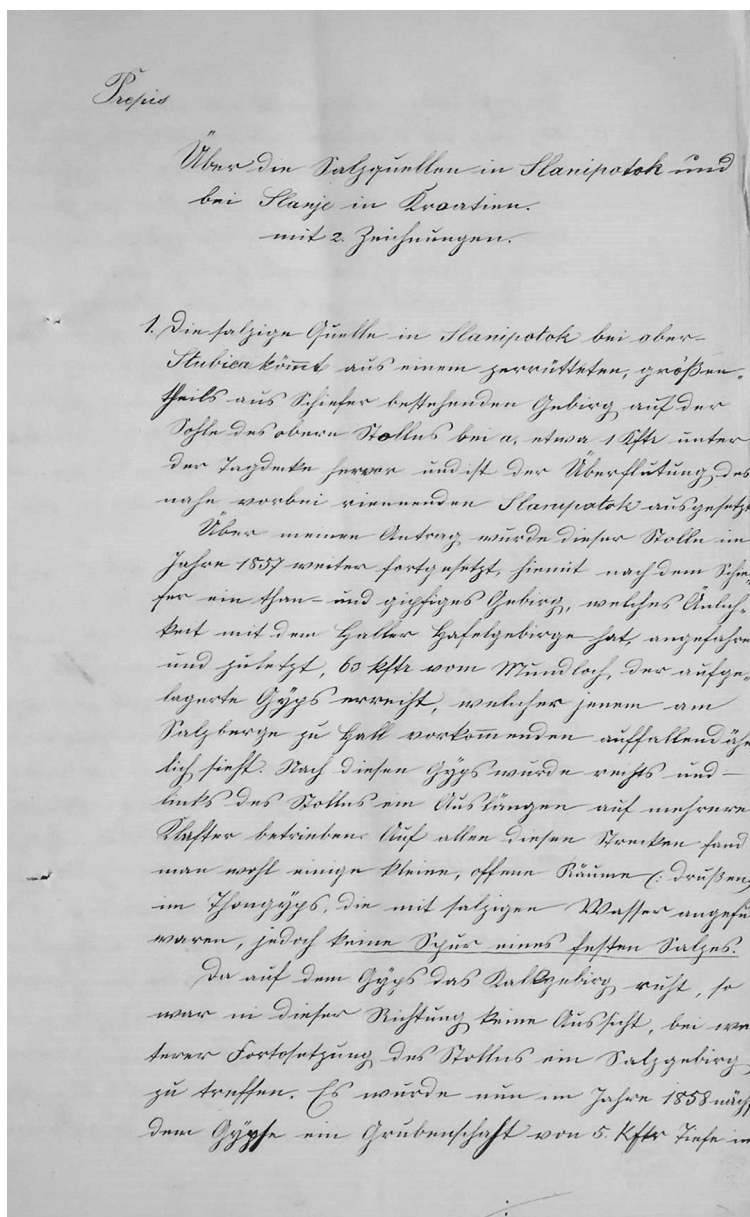 Prepis
Über die Salzquellen in Slanipotok und
bei Slanje in Kroatien.
mit 2. Zeichnungen.
1. Die salzige Quelle in Slanipotok bei ober-
Stubica kömt aus einem zerrütteten, größen-
theils aus Schiefer bestehenden Gebirg auf der
Sohle des obern Stollns bei a, etwa 1 Kftr unter
der Tagdecke hervor und ist der Überflutung des
nahe vorbei riennenden Slanipotok ausgesetzt
Über meinen Antrag wurde dieser Stolln im
Jahre 1857 weiter fortgesetzt, hiemit nach dem Schie-
fer ein than- und gipsiges Gebirg, welches Änlich-
keit mit dem Haller Haselgebirge hat, angefahre
und zuletzt, 63 Kftr vom Mundloch, der aufge-
lagerte Gyps erreicht, welcher jenem am
Salzberge zu Hall vorkommenden auffallend äh
lich sieht. Nach diesen Gyps wurde rechts und
links des Stollns ein Auslängen auf mehrere
Klafter betrieben. Auf allen diesen Strecken fand
man wohl einige kleine, offene Räume (: Drußen
im Thongyps, die mit salzigen Wasser angefü
waren, jedoch keine Spur eines festen Salzes.
Da auf dem Gyps das Kalkgebirg ruht, so
war in dieser Richtung keine Aussicht, bei we
terer Fortsetzung des Stollns ein Salzgebirg
zu treffen. Es wurde nun im Jahre 1858 näch
dem Gypse ein Grubenschaft von 5. Kftr Tiefe in